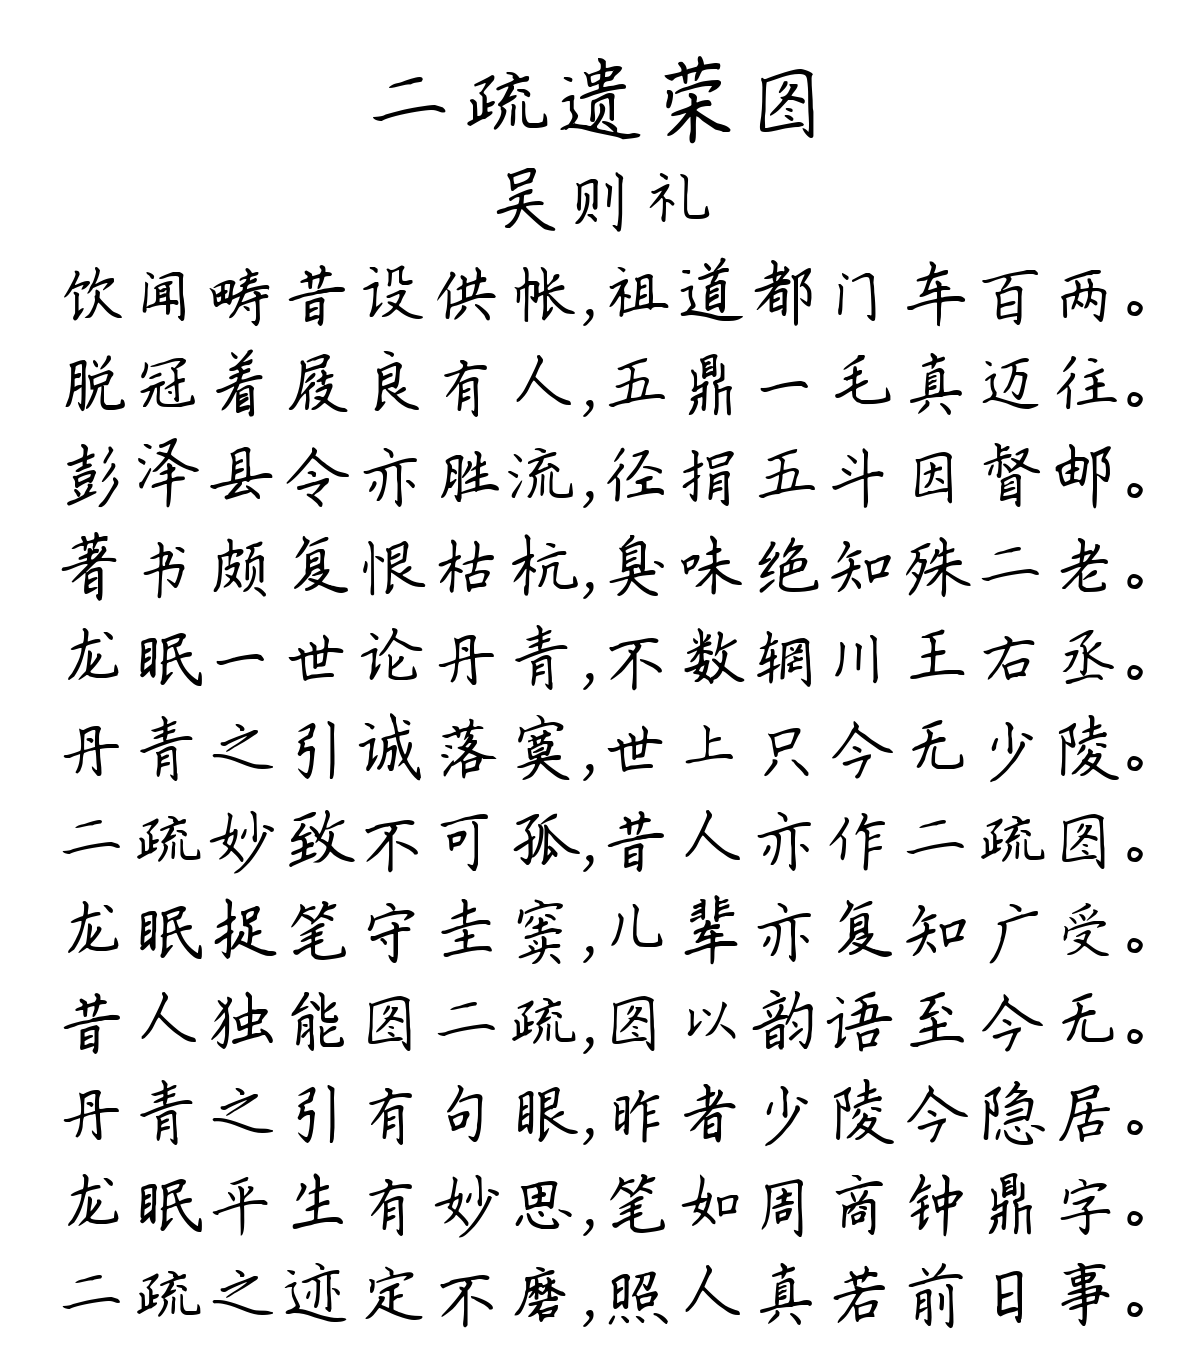 二疏遗荣图
吴则礼
饮闻畴昔设供帐,祖道都门车百两。
脱冠着屐良有人,五鼎一毛真迈往。
彭泽县令亦胜流,径捐五斗因督邮。
著书颇复恨枯杭,臭味绝知殊二老。
龙眠一世论丹青,不数辋川王右丞。
丹青之引诚落寞,世上只今无少陵。
二疏妙致不可孤,昔人亦作二疏图。
龙眠捉笔守圭窦,儿辈亦复知广受。
昔人独能图二疏,图以韵语至今无。
丹青之引有句眼,昨者少陵今隐居。
龙眠平生有妙思,笔如周商钟鼎字。
二疏之迹定不磨,照人真若前日事。